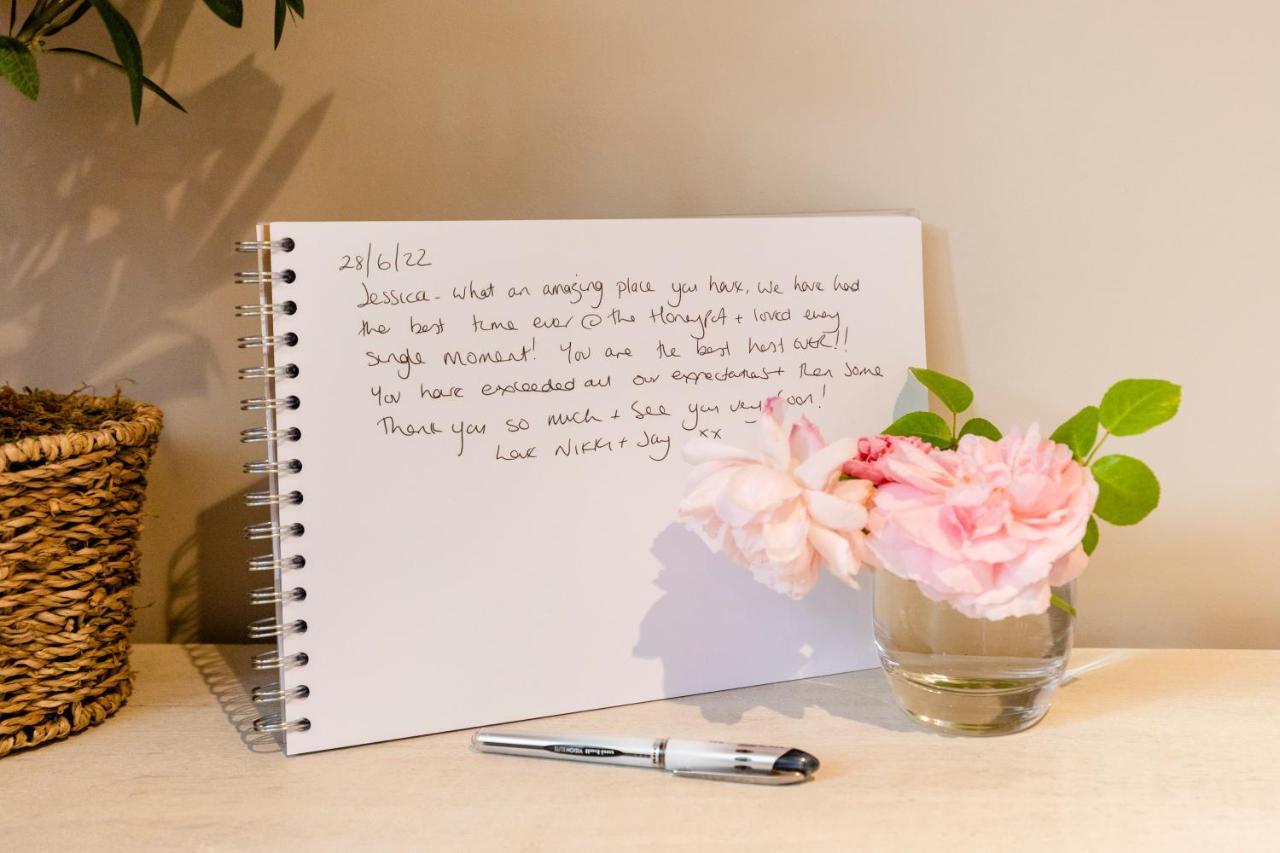 28/6/22
Jessica - What an amazing place you have, we have had
the best time ever @ the HoneyPot + loved every
single moment! You are the best host EVER!!
You have exceeded all our expectations + then some
Thank you so much + see you very soon!
Love Nikki + Jay xx
uni-ball VISION ELITE